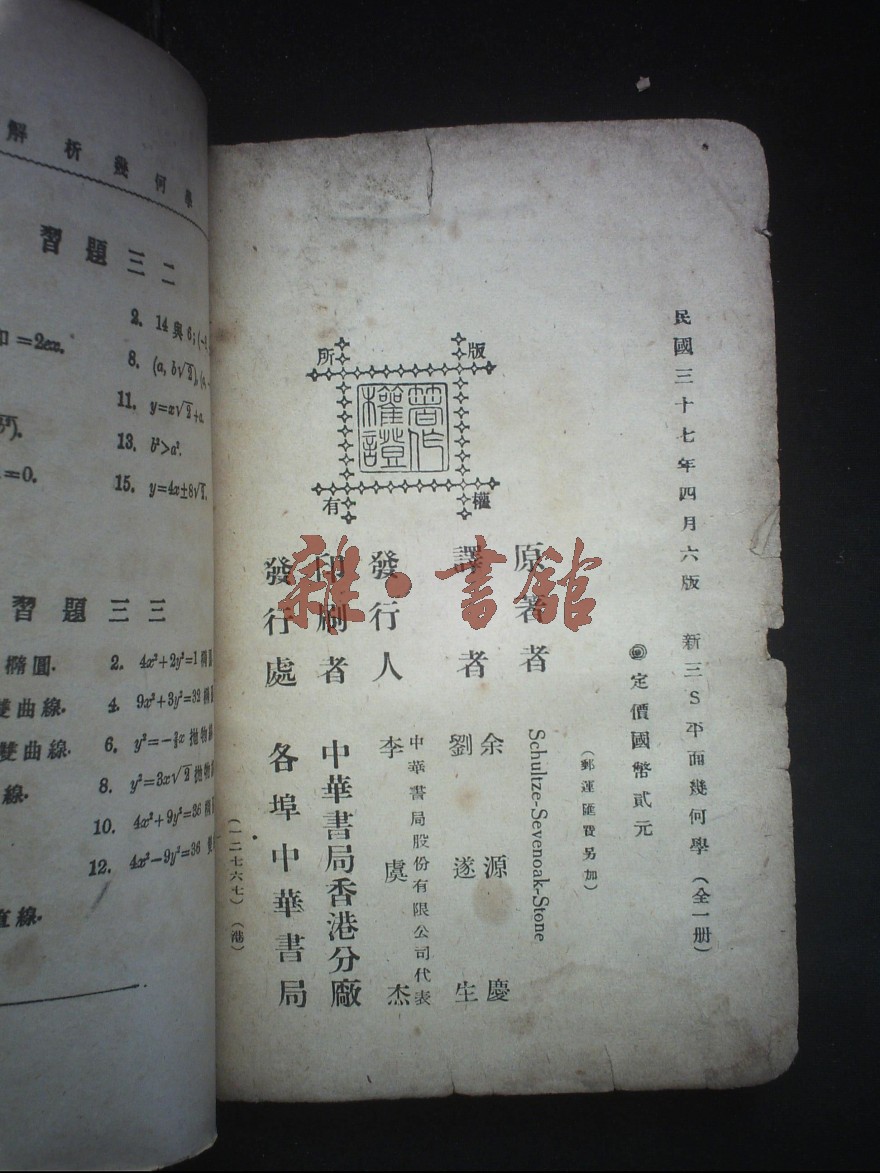 解析幾何學
習題三二
=2ex.
2. 14與6;
8. (a, b√2),
11. y=x√2+a.
13. b²>a².
=0.
15. y=4x±8√
習題三三
橢圓.
2. 4x²+2y²=1
雙曲線.
4. 9x²+3y²=32
雙曲線.
6. 拋物
線.
8. y²=3x√2 拋物
10. 4x²+9y²=36
12. 4x²-9y²=36
直線.
民國三十七年四月六版
新三S平面幾何學(全一册)
定價國幣貳元
(郵運匯費另加)
原著者 Schultze-Sevenoak-Stone
譯者 余源慶
劉遂生
發行人 中華書局股份有限公司代表
李虞杰
印刷者 中華書局香港分廠
發行處 各埠中華書局
(一二七六七)(港)
版權所有
著作權證
雜·書館